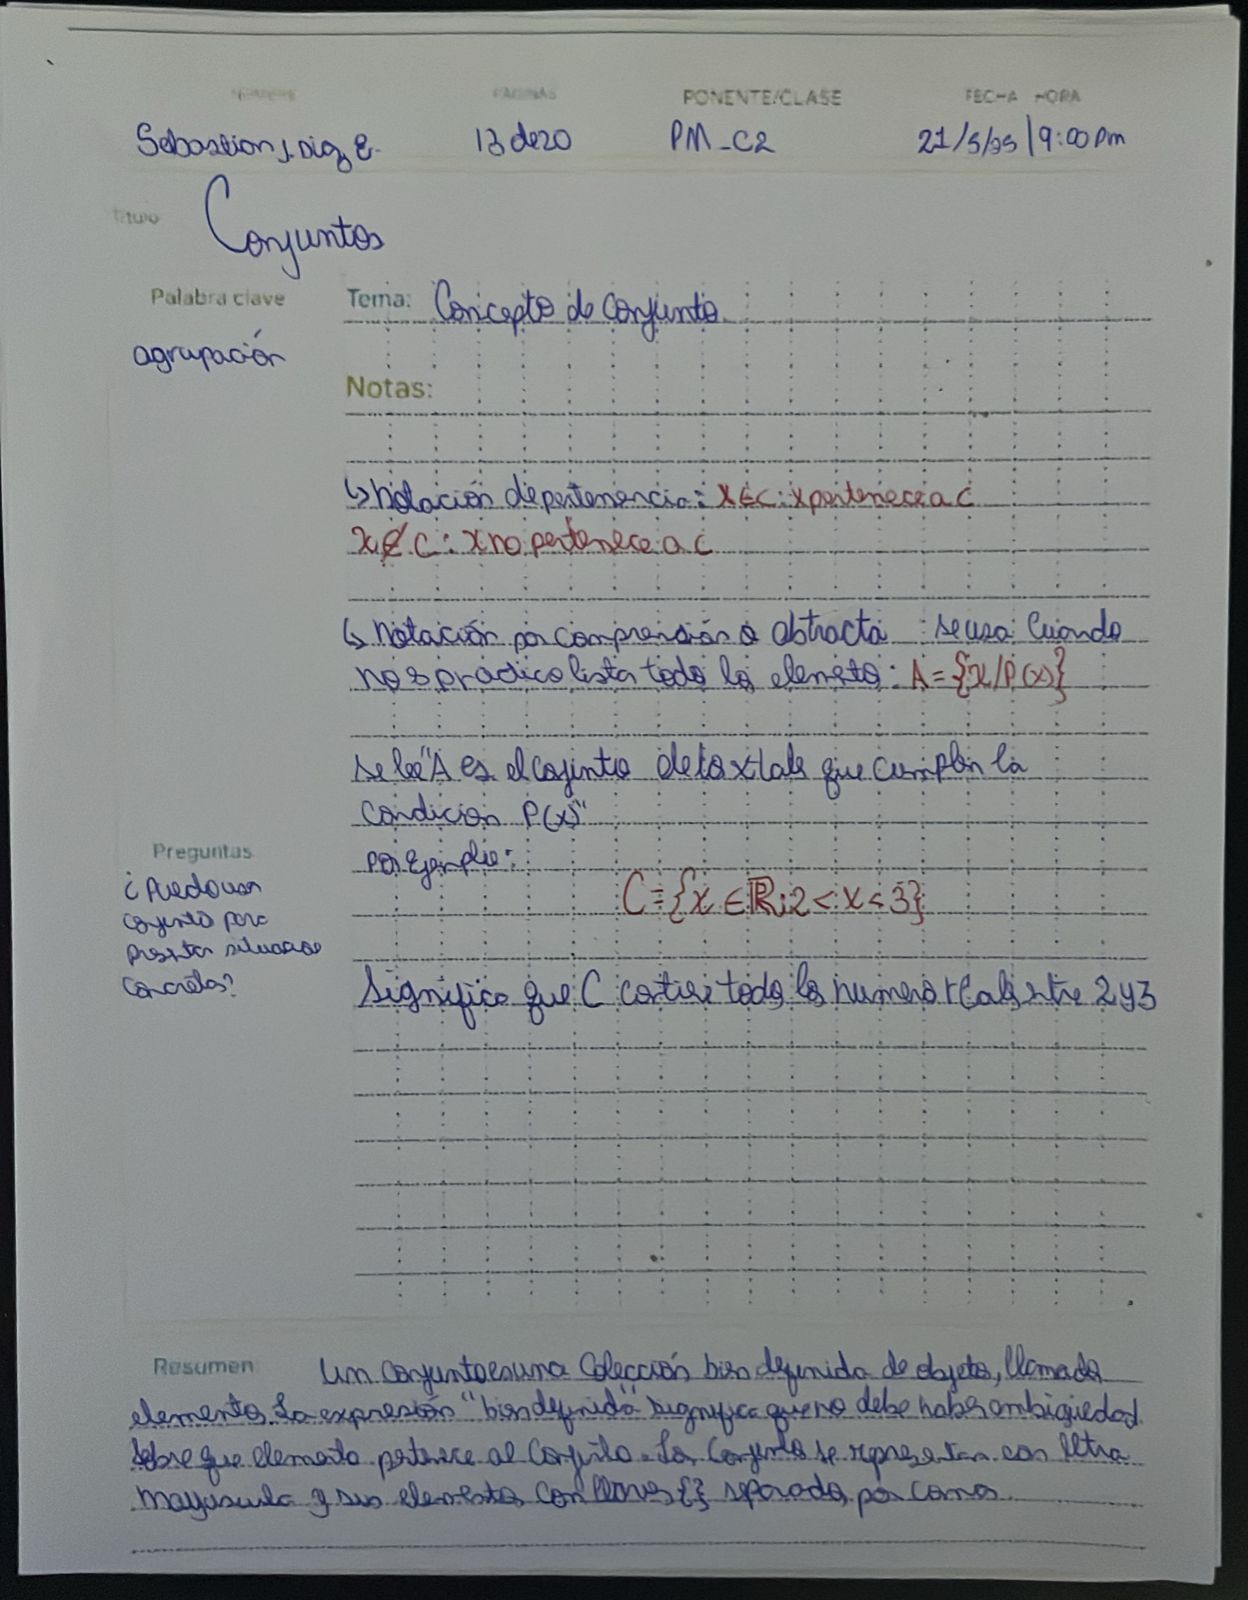 NOMBRE PAGINAS PONENTE/CLASE FECHA HORA
Sebastian J. Diaz E. 13 de 20 PM_C2 21/5/25 | 9:00 pm
Titulo Conjuntos
Palabra clave
agrupación
Tema: Concepto de conjunto
Notas:
↳ Notación de pertenencia: x ∈ C: x pertenece a C
x ∉ C: x no pertenece a C
↳ Notación por comprensión o abtracta : se usa cuando
no es practico lista todo los elemeto: A = {x/P(x)}
se lee "A es el cojinto de los x tals que cumplen la
condicion P(x)"
por ejemplo:
C = {x ∈ ℝ: 2 < x < 3}
Significa que C cotiene todo los numero reals etre 2 y 3
Preguntas
¿Puedo usar
cojunto para
situacioe
concretas?
Resumen Un conjunto es una Colección bien definida de objeto, llamada
elemento. La expresión "bien definida" significa que no debe haber ambigüedad
sobre que elemento pertenece al conjunto. Los Conjunto se represetan con letra
mayuscula y sus elementos con llaves {} separada por comas.